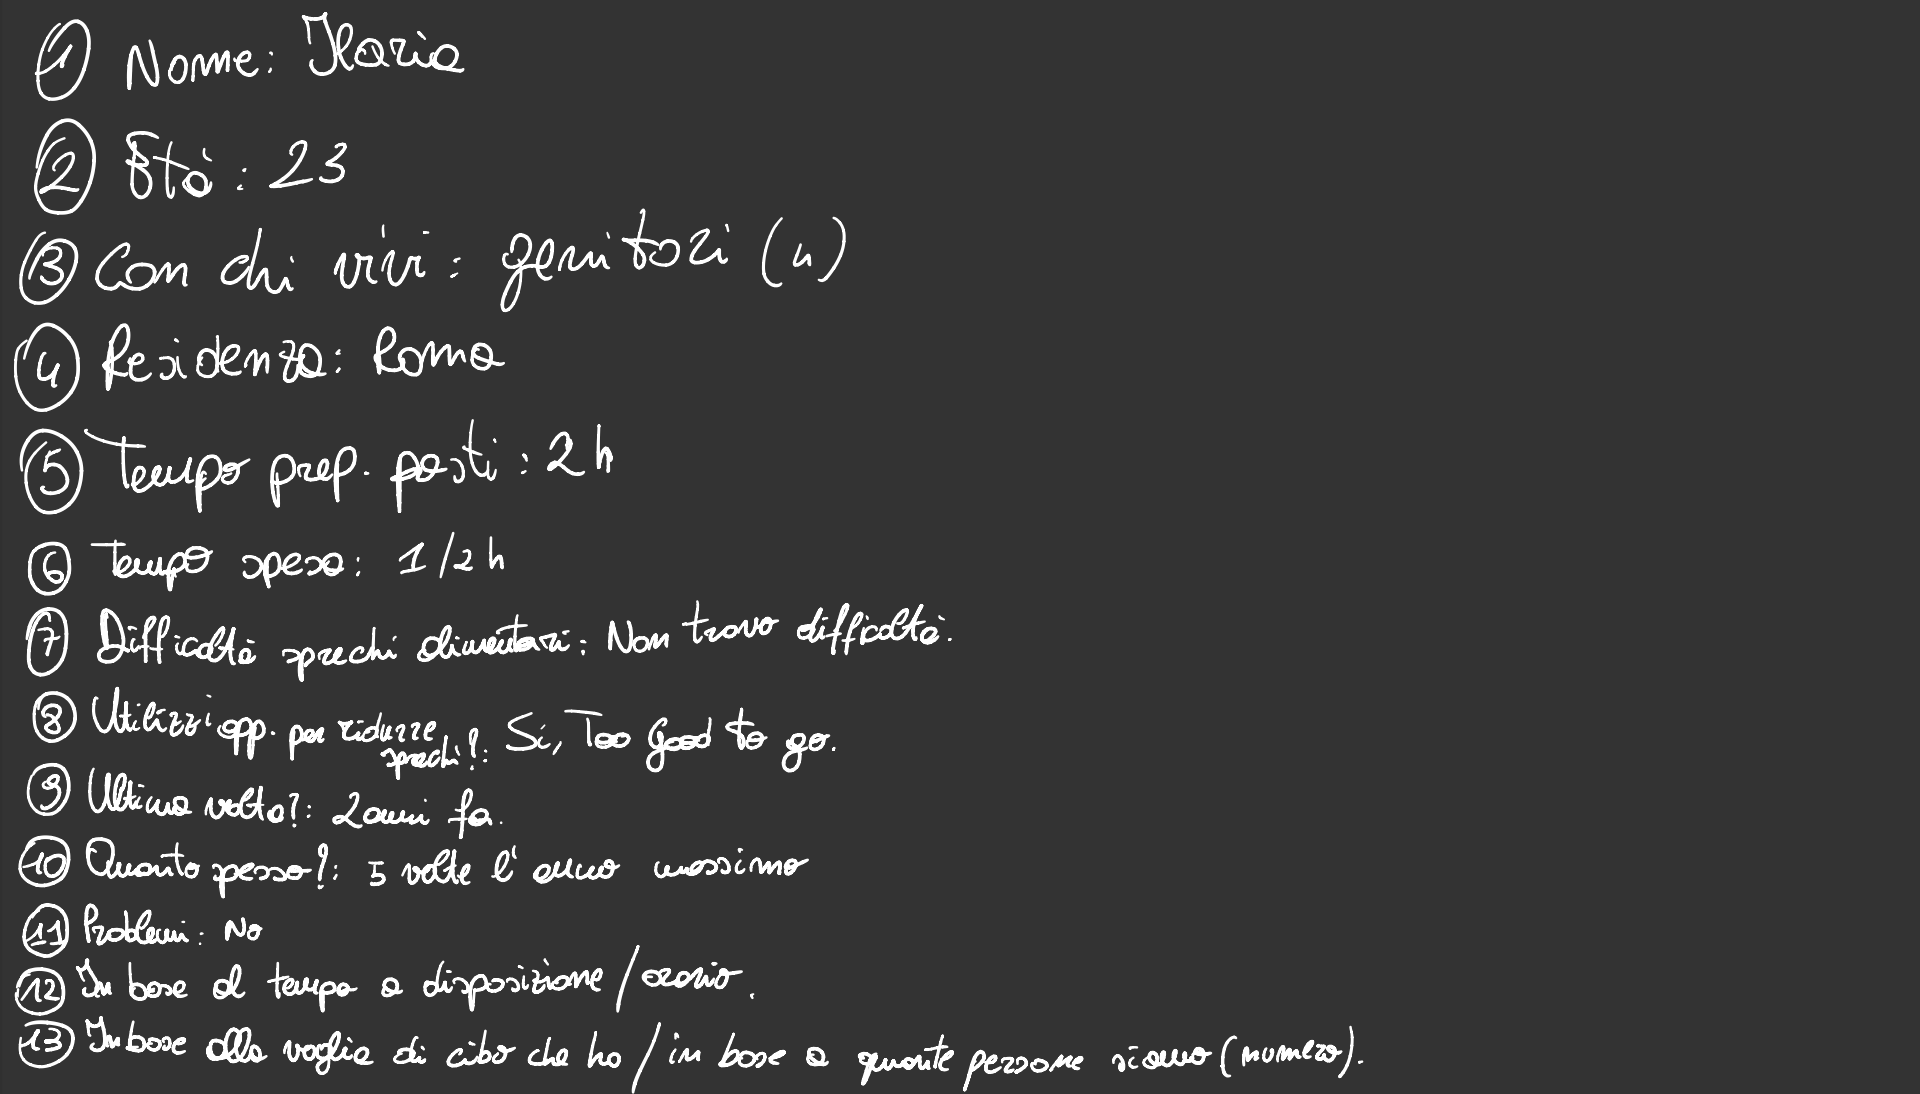 1 Nome: Ilaria
2 Età: 23
3 Con chi vivi: genitori (4)
4 Residenza: Roma
5 Tempo prep. pasti: 2h
6 Tempo spesa: 1/2h
7 Difficoltà sprechi alimentari: Non trovo difficoltà.
8 Utilizzi app. per ridurre sprechi?: Si, Too Good to go.
9 Ultima volta?: 2 anni fa.
10 Quanto spesso?: 5 volte l'anno massimo
11 Problemi: No
12 In base al tempo a disposizione/orario.
13 In base alla voglia di cibo che ho/in base a quante persone siamo (numero).